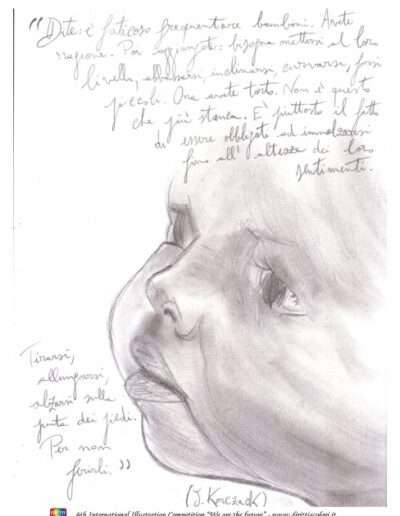 “Dite: è faticoso frequentare bambini. Avete
ragione. Poi aggiungete: bisogna mettersi al loro
livello, abbassarsi, inclinarsi, curvarsi, farsi
piccoli. Ora avete torto. Non è questo
che più stanca. E' piuttosto il fatto
di essere obbligati ad innalzarsi
fino all'altezza dei loro
sentimenti.
Tirarsi,
allungarsi,
alzarsi sulla
punta dei piedi.
Per non
ferirli.”
(J. Korczack)
6th International Illustration Competition "We are the future" - www.dirittiacolori.it